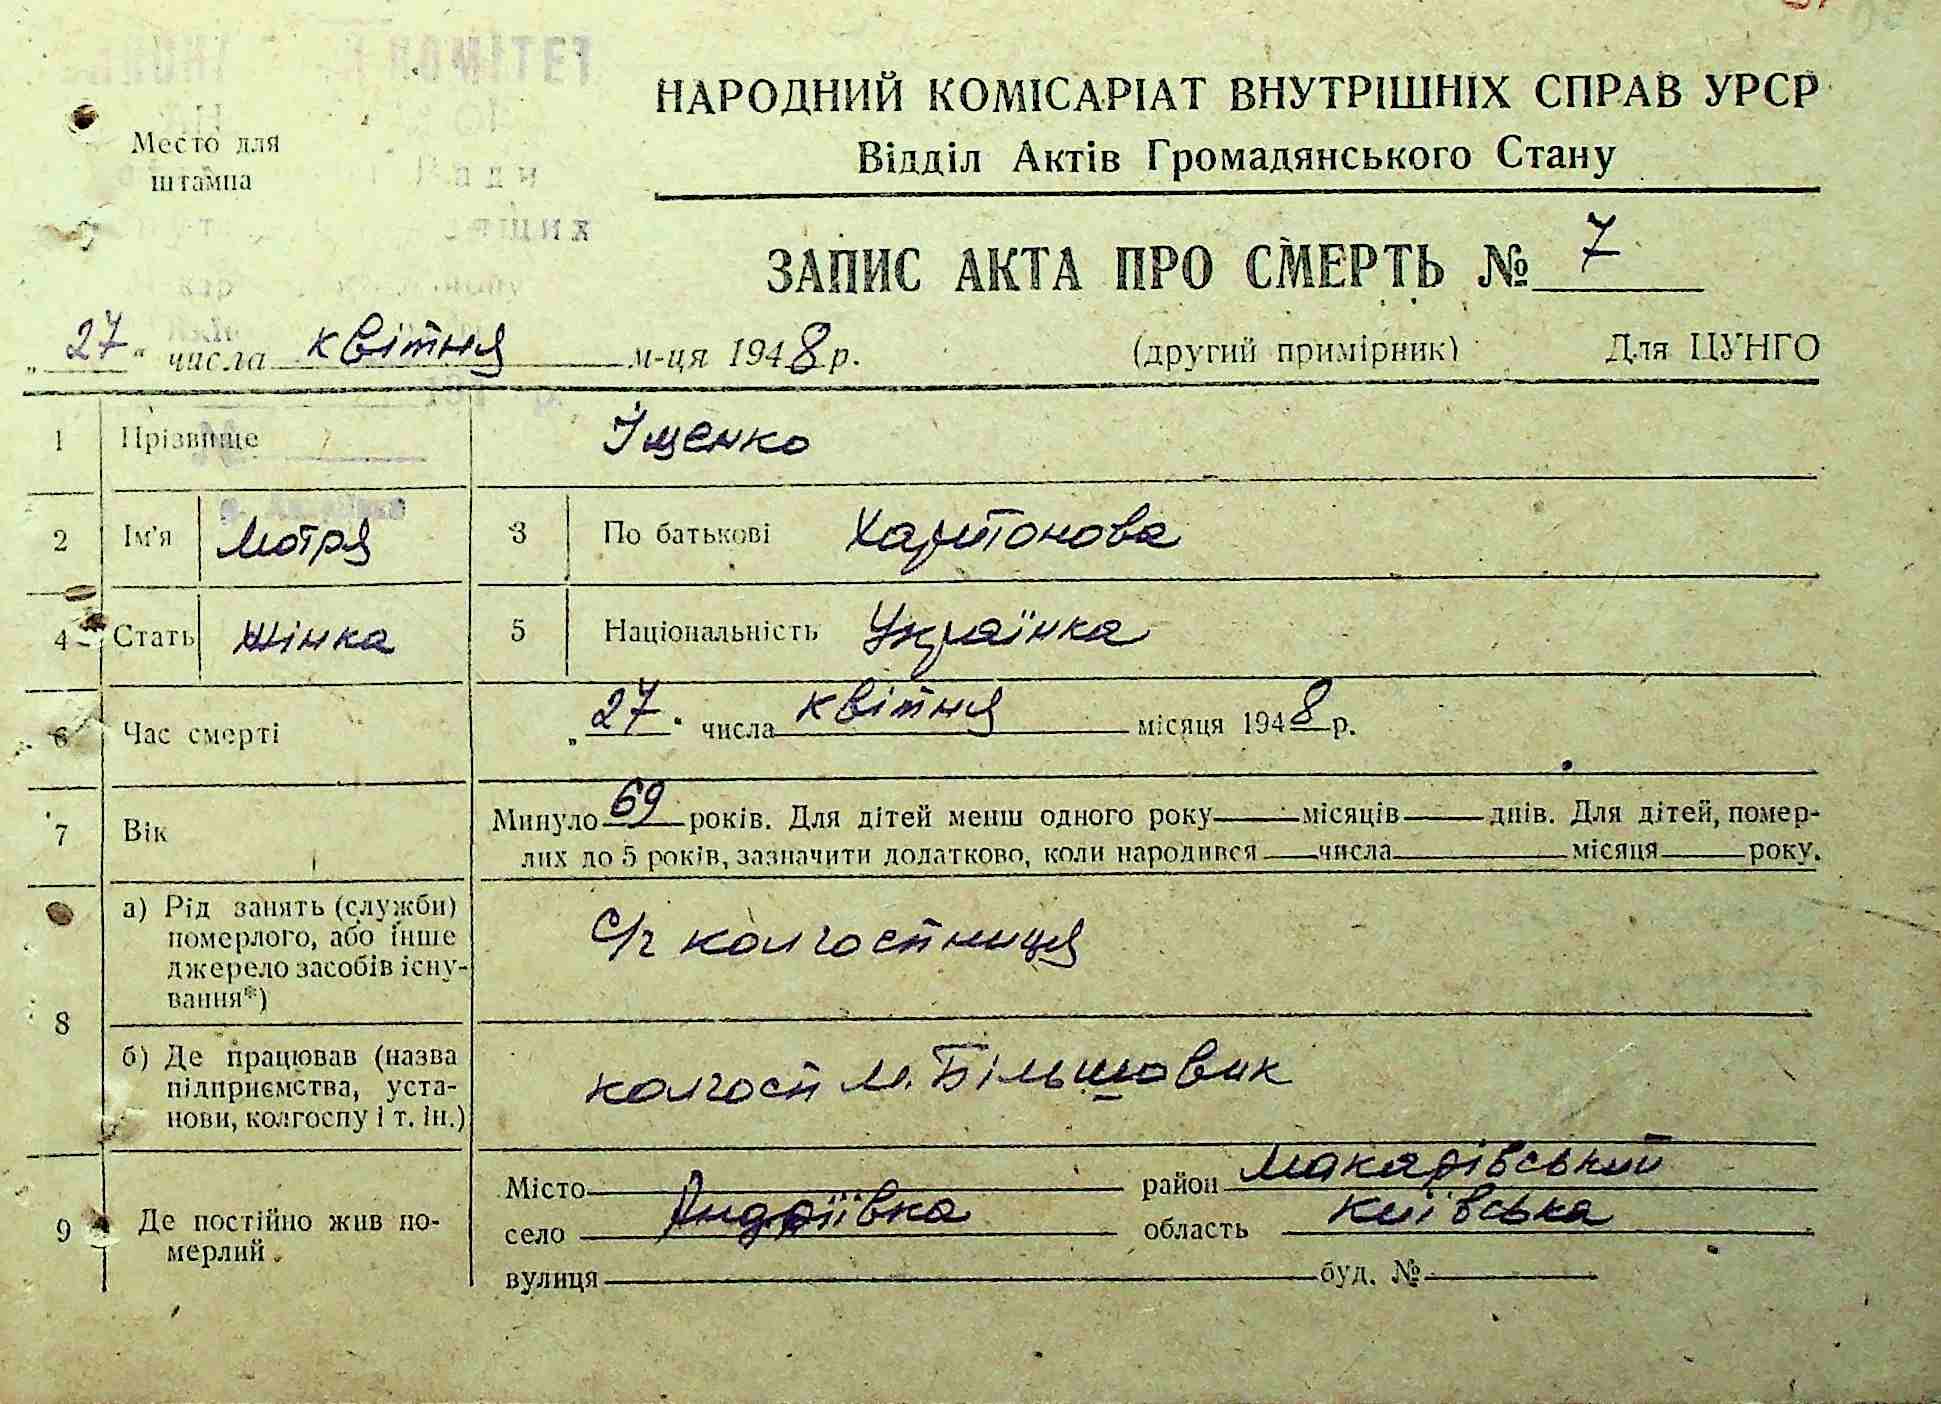 КОМІТЕТ
НАРОДНИЙ КОМІСАРІАТ ВНУТРІШНІХ СПРАВ УРСР
Відділ Актів Громадянського Стану
Место для
штампа
ЗАПИС АКТА ПРО СМЕРТЬ № 7
„27“ числа квітня м-ця 1948 р. (другий примірник) Для ЦУНГО
1 Прізвище Іщенко
2 Ім'я Мотря 3 По батькові Харитонова
4 Стать жінка 5 Національність Українка
6 Час смерті „27“ числа квітня місяця 1948 р.
7 Вік Минуло 69 років. Для дітей менш одного року місяців днів. Для дітей, помер-
лих до 5 років, зазначити додатково, коли народився числа місяця року.
8 а) Рід занять (служби)
померлого, або інше
джерело засобів існу-
вання*)
с/г колгоспниця
б) Де працював (назва
підприємства, уста-
нови, колгоспу і т. ін.)
колгосп М. Більшовик
9 Де постійно жив по-
мерлий
Місто район Макарівський
село Андріївка область Київська
вулиця буд. №